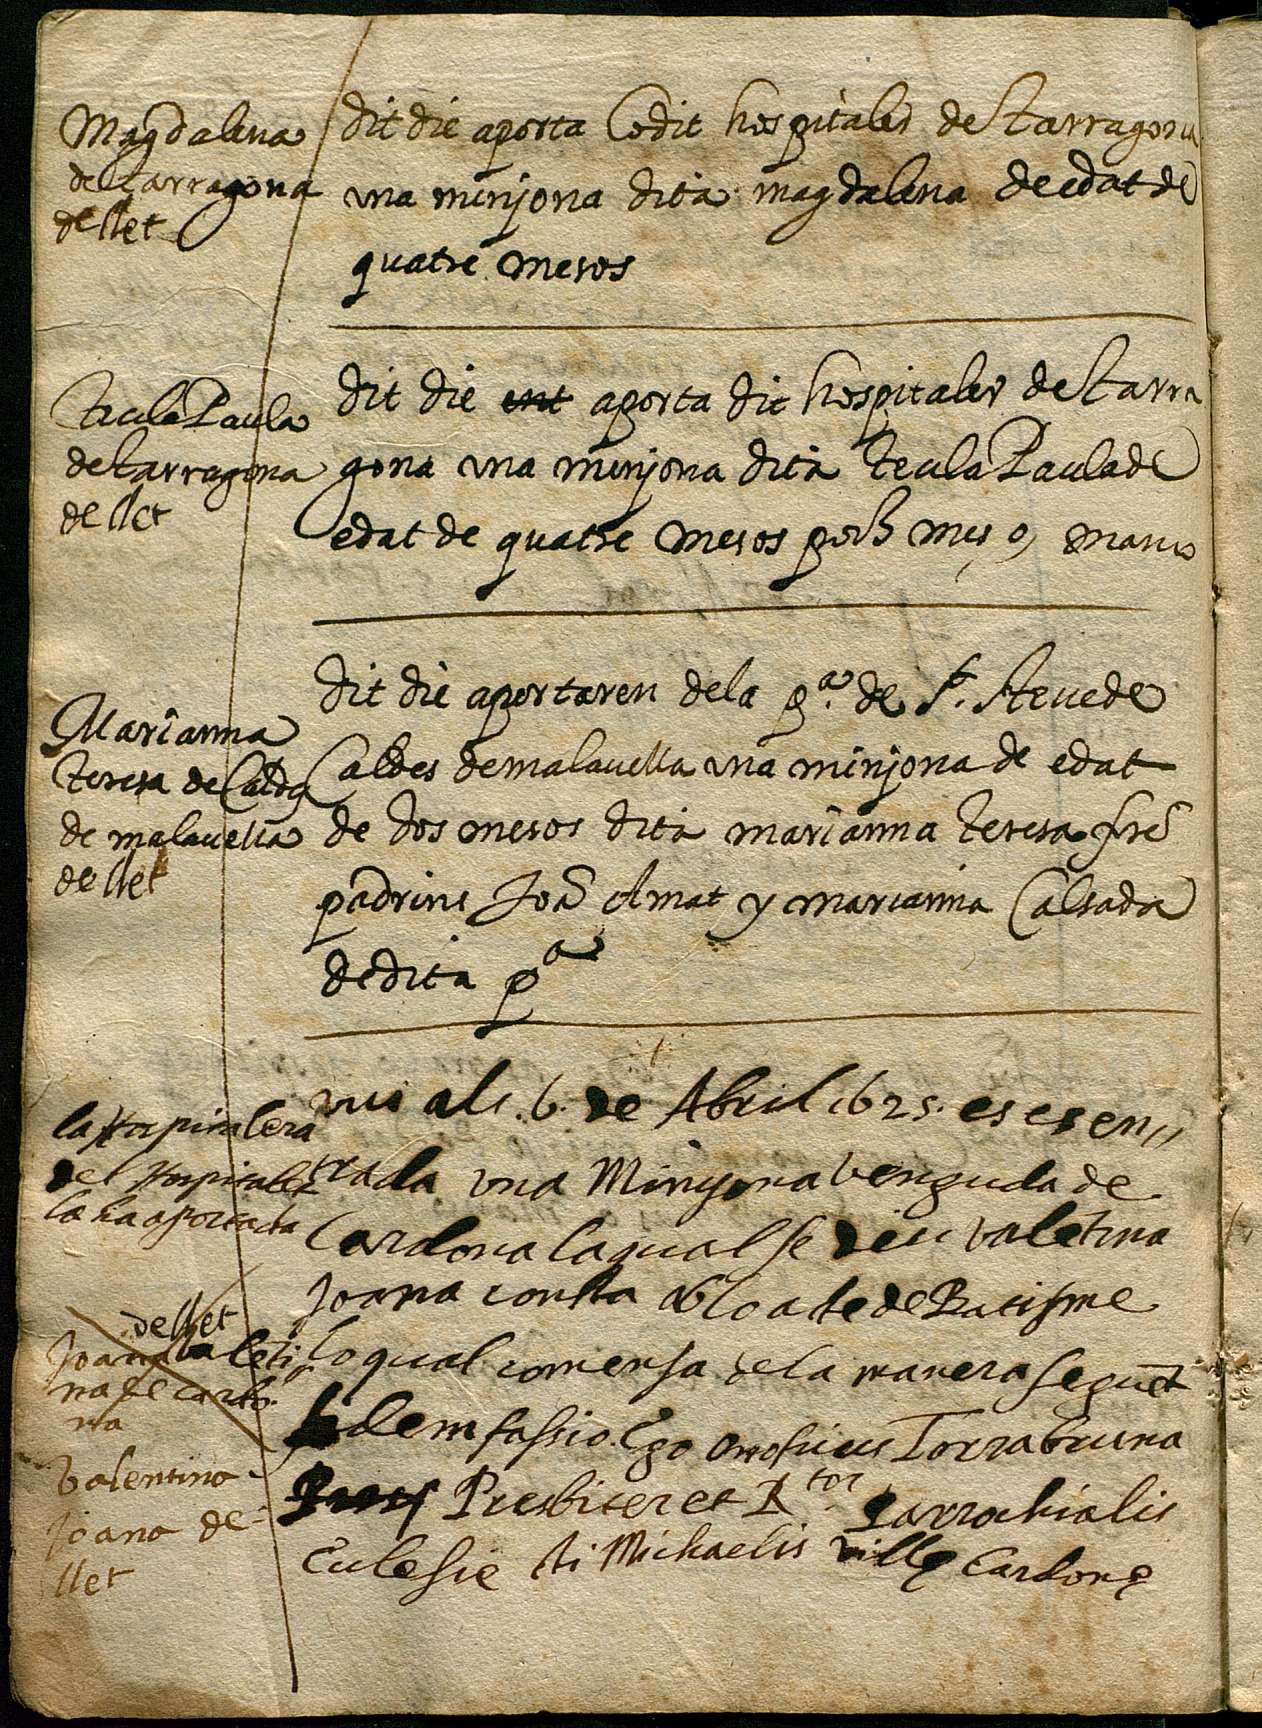 Magdalena
de Tarragona
de llet
dit die aporta lo dit hospitaler de Tarragona
una minjona dita magdalena de edat de
quatre mesos
Tecla Paula
de Tarragona
de llet
dit die ent aporta dit hospitaler de Tarra
gona una minjona dita Tecla Paula de
edat de quatre mesos poch mes o, manco
Marianna
Teresa de Caldes
de malavella
de llet
dit die aportaren de la pa. de St. Steve de
Caldes de malavella una minjona de edat
de dos mesos dita marianna Teresa fore
padrins Joā Amat y marianna Calsada
de dita pa
la Hospitalera
del Hospitalet
la ha aportada
vui als .6. de Abril 1625. es es en//
trada una Minyona benguda de
Cardona la qual se diu Valētina
Joana consta ab lo acte de Batisme
lo qual comensa de la manera seguēt
fidem fassio. Ego Onofrius Torrabruna
Presbiter et Rtor parrochialis
Eclesie Sti Michaelis ville Cardone
de llet
Joana Valēti
na de Cardo
na
Valentina
Joana de
llet